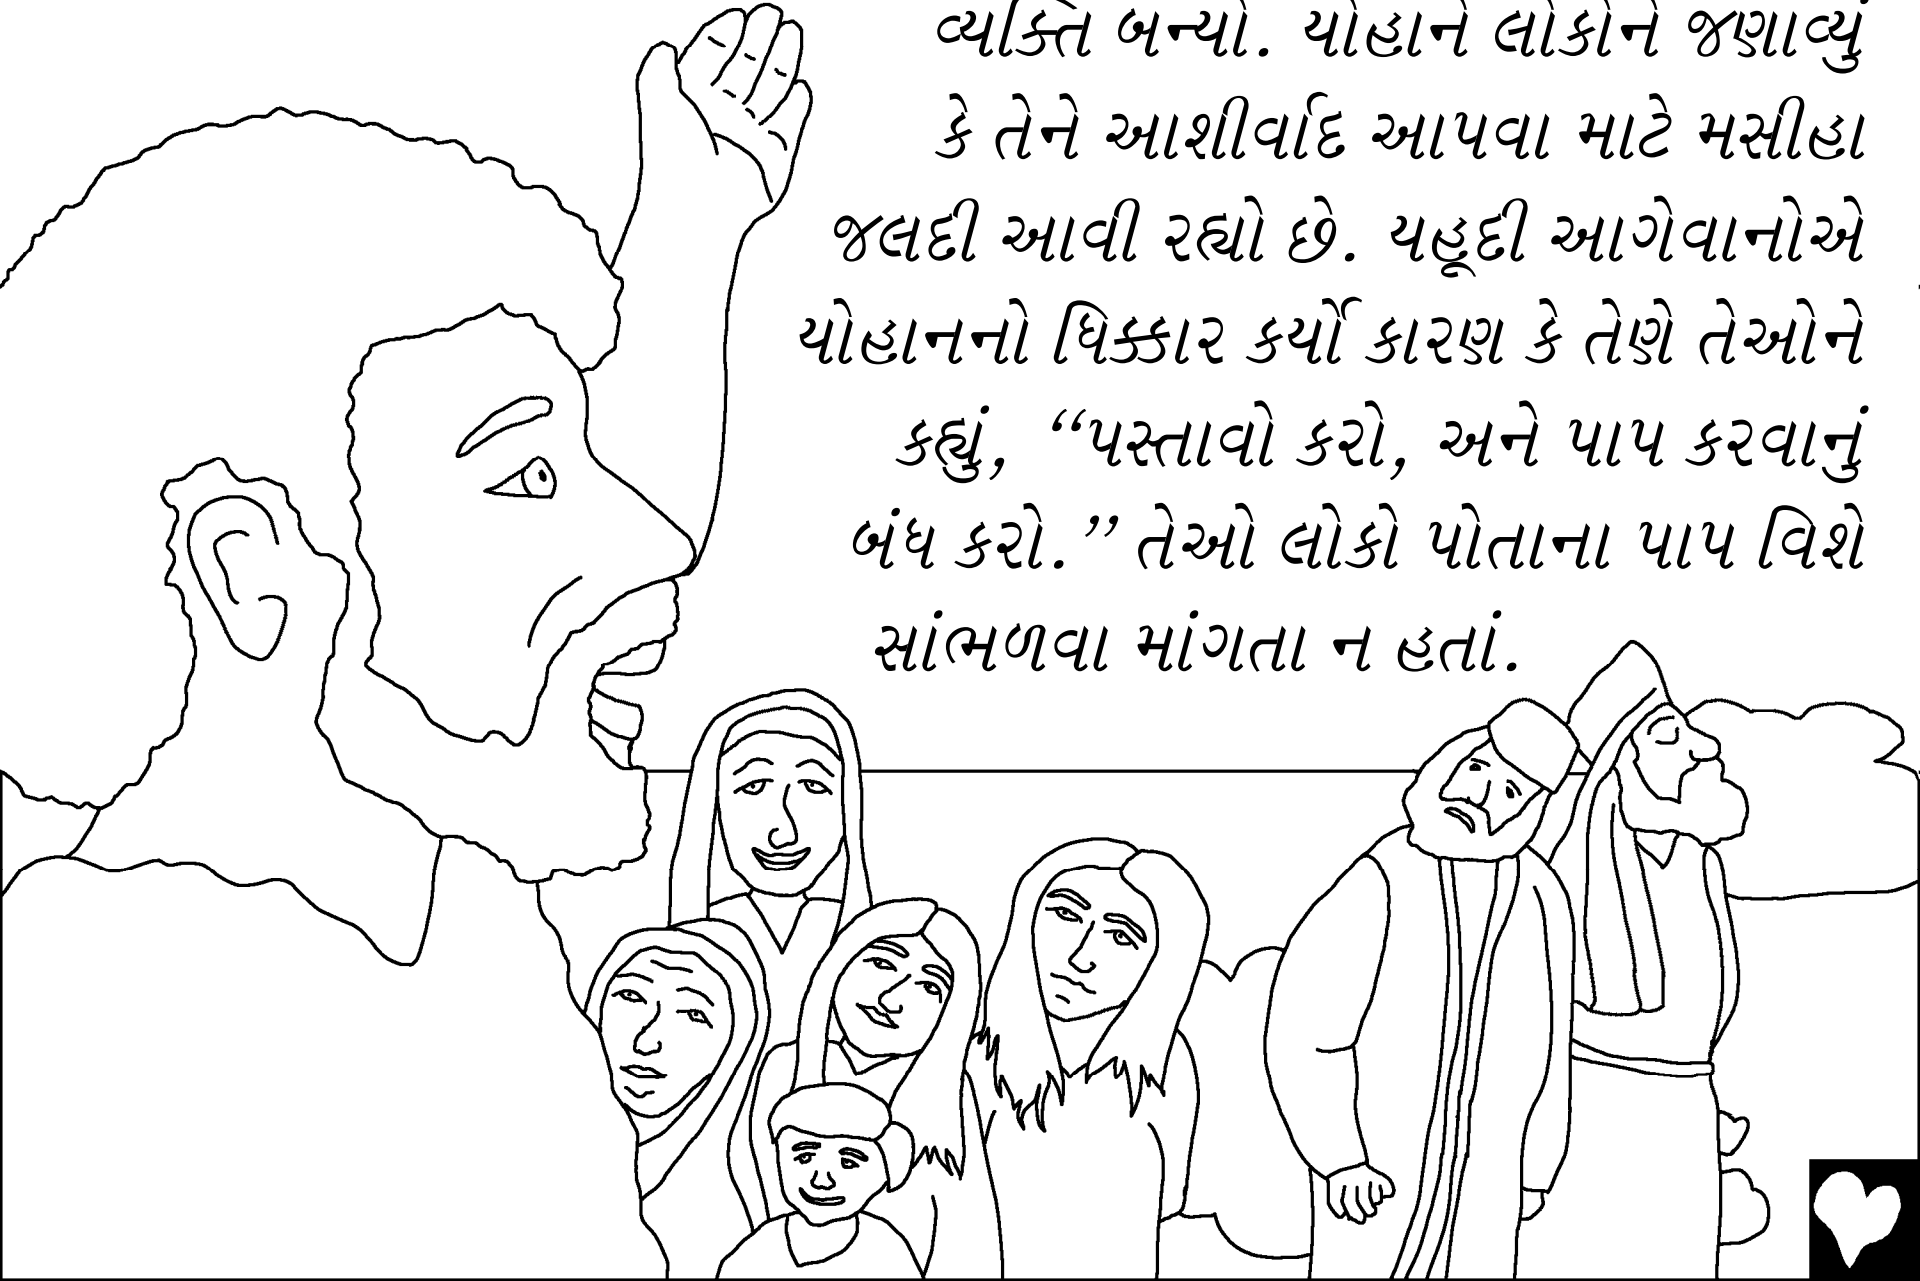 વ્યક્તિ બન્યો. યોહાને લોકોને જણાવ્યું
કે તેને આશીર્વાદ આપવા માટે મસીહા
જલદી આવી રહ્યો છે. યહૂદી આગેવાનોએ
યોહાનનો ધિક્કાર કર્યો કારણ કે તેણે તેઓને
કહ્યું, “પસ્તાવો કરો, અને પાપ કરવાનું
બંધ કરો.” તેઓ લોકો પોતાના પાપ વિશે
સાંભળવા માંગતા ન હતાં.